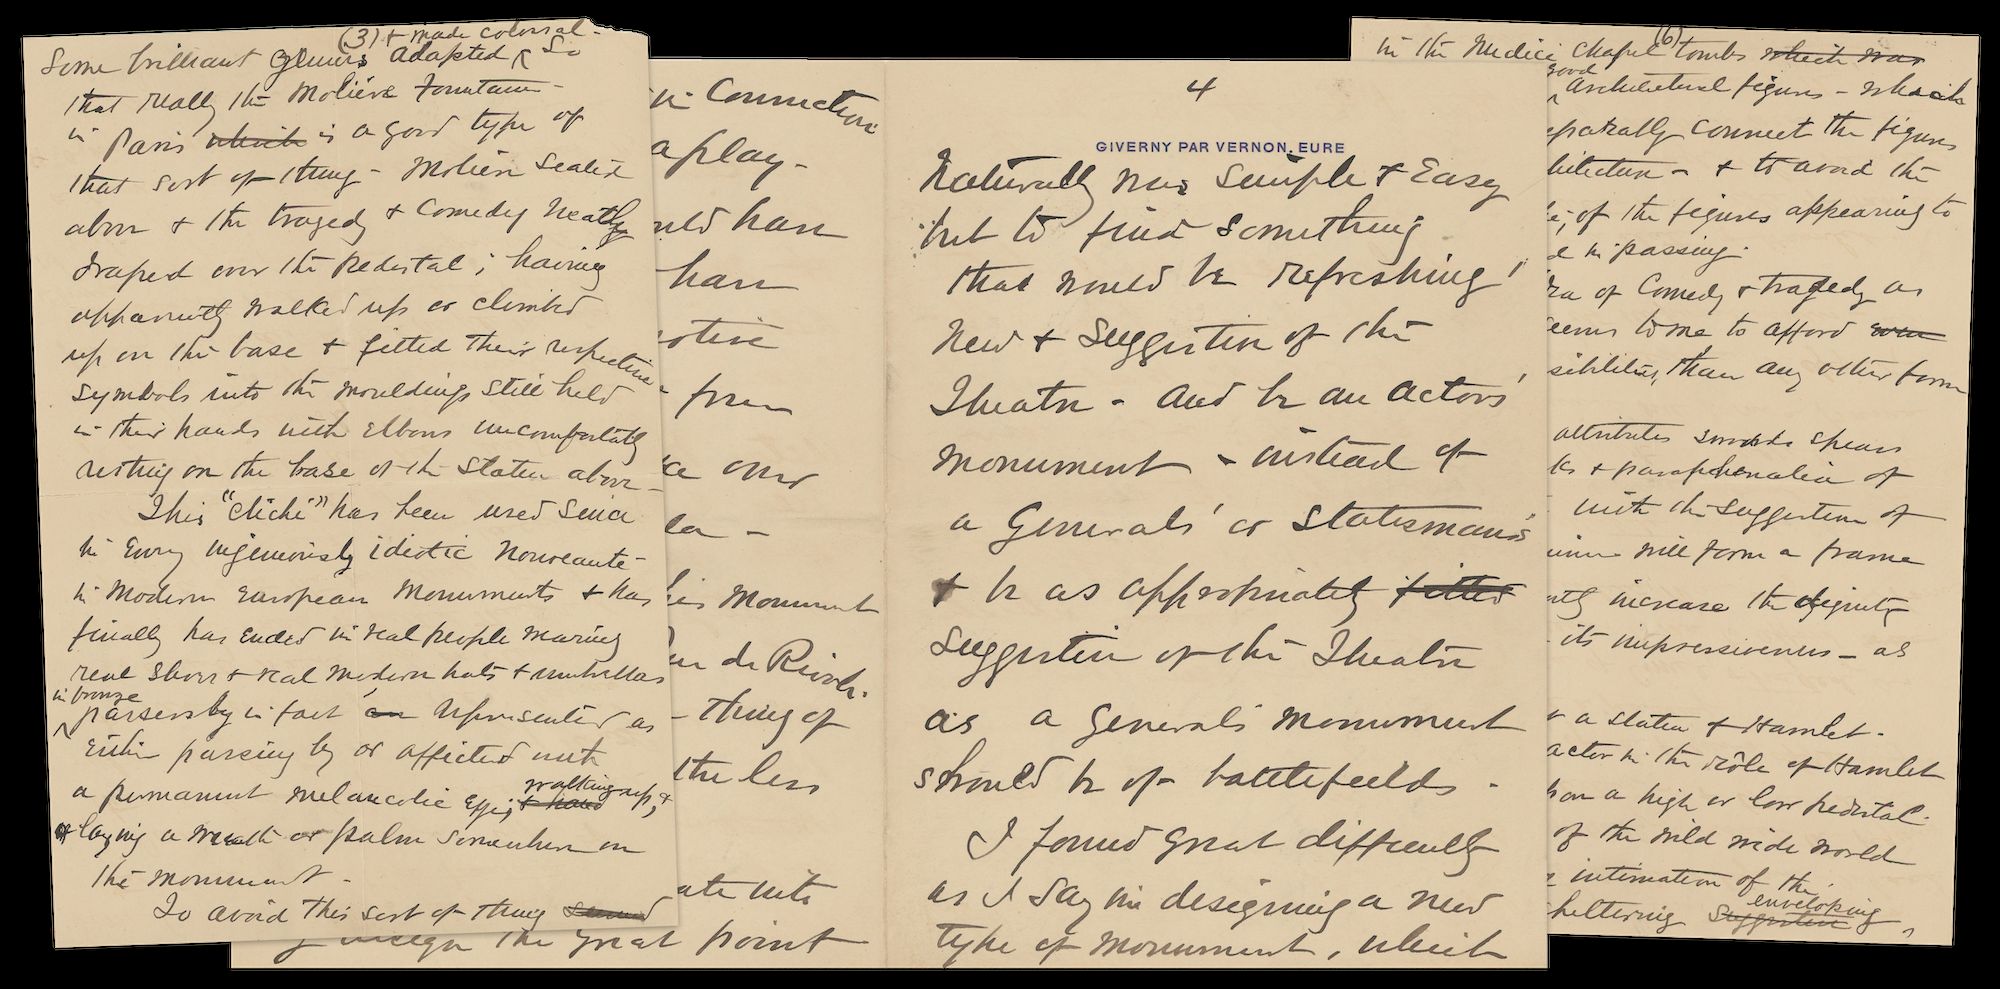 (3) & made colossal -
Some brilliant genius adapted ^ So
that really the Molière Fountain -
in Paris which is a good type of
that sort of thing - Molière seated
above & the tragedy & Comedy neatly
draped over the pedestal; having
apparently walked up or climbed
up on the base & fitted their respective
symbols into the mouldings still held
in their hands with elbows uncomfortably
resting on the base of the statue above -
This "cliché" has been used since
in every ingeniously idiotic nouveauté
in modern European Monuments & has
finally has ended in real people wearing
real shoes & real modern hats & umbrellas
in bronze
^ passersby in fact an represented as
either passing by or afflicted with
a permanent melancolic
walking up, &
& laying a wreath or palm somewhere on
the monument -
To avoid this sort of thing seemed
in Connection
a play -
uld have
have
otive
from
ce our
la -
his Monument
ue de Rivoli.
- thing of
the less
ate with
the great point
4
GIVERNY PAR VERNON. EURE
Naturally was simple & Easy
but to find something
that would be refreshing
new & suggestion of the
Theatre - and be an actors'
monument - instead of
a Generals' or Statesman's
& be as appropriately fitted
suggestion of the Theatre
as a general's monument
should be of battlefields -
I found great difficulty
as I say in designing a new
type of monument, which
(6)
in the Medici Chapel tombs which was
good
^ architectural figures - which
eparably connect the figures
hitecture - & to avoid the
of the figures appearing to
e in passing.
ea of Comedy & tragedy as
eems to me to afford even
sibilities, than any other form
attributes swords spears
ks & paraphenalia of
with the suggestion of
will form a frame
ntly increase the dignity
its impressiveness - as
a statue of Hamlet -
actor in the rôle of Hamlet
on a high or low pedestal.
of the wild wide world
intimation of the
enveloping
heltering suggestion